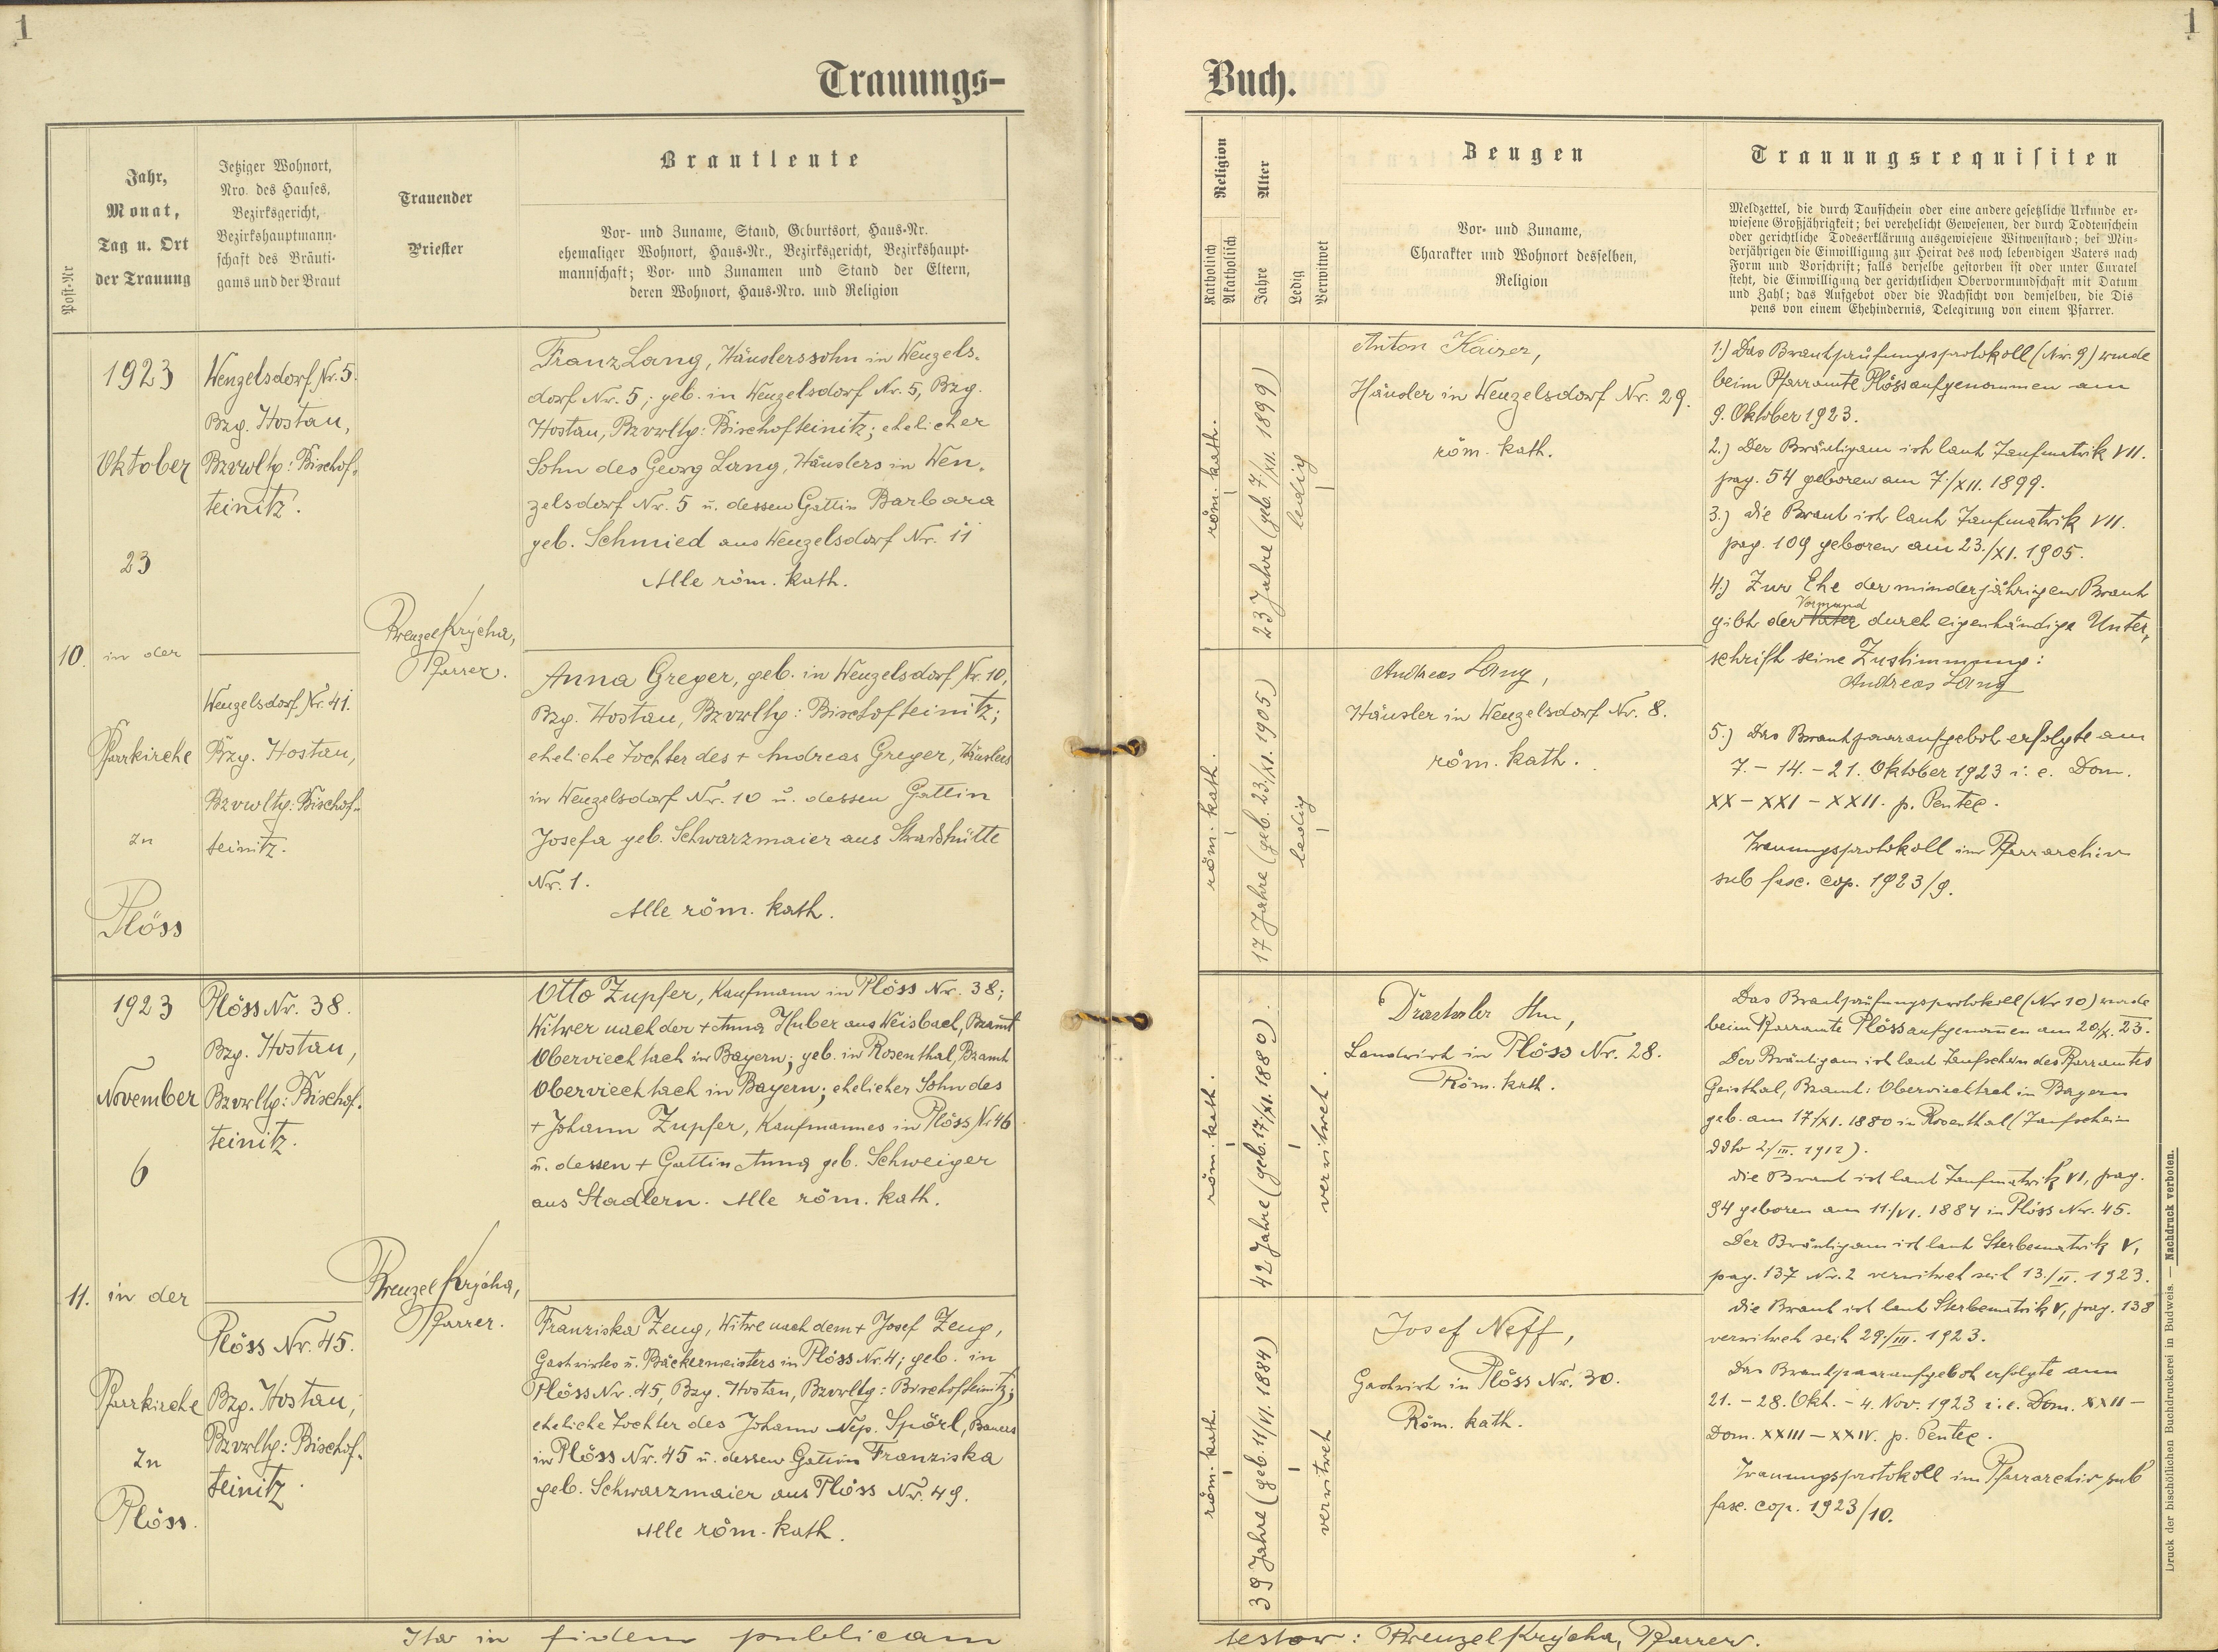 1
1
Trauungs-
Buch.
Post-Nr
Jahr,
Monat,
Tag u. Ort
der Trauung
Jetziger Wohnort,
Nro. des Hauses,
Bezirksgericht,
Bezirkshauptmann-
schaft des Bräuti-
gams und der Braut
Trauender
Priester
Brautleute
Vor- und Zuname, Stand, Geburtsort, Haus-Nr.
ehemaliger Wohnort, Haus-Nr., Bezirksgericht, Bezirkshaupt-
mannschaft; Vor- und Zunamen und Stand der Eltern,
deren Wohnort, Haus-Nro. und Religion
Religion
Katholisch
Akatholisch
Alter
Jahre
Ledig
Verwitwet
Zeugen
Vor- und Zuname,
Charakter und Wohnort desselben,
Religion
Trauungsrequisiten
Meldzettel, die durch Taufschein oder eine andere gesetzliche Urkunde er-
wiesene Großjährigkeit; bei verehelicht Gewesenen, der durch Todtenschein
oder gerichtliche Todeserklärung ausgewiesene Witwenstand; bei Min-
derjährigen die Einwilligung zur Heirat des noch lebendigen Vaters nach
Form und Vorschrift; falls derselbe gestorben ist oder unter Curatel
steht, die Einwilligung der gerichtlichen Obervormundschaft mit Datum
und Zahl; das Aufgebot oder die Nachsicht von demselben, die Dis
pens von einem Ehehindernis, Delegirung von einem Pfarrer.
10.
1923
Oktober
23
in der
Pfarrkirche
zu
Plöss
Wenzelsdorf Nr. 5.
Bzg. Hostau,
Bzvwltg: Bischof-
teinitz.
Wenzelsdorf Nr. 41.
Bzg. Hostau,
Bzvwltg: Bischof-
teinitz.
Wenzel Krýcha,
Pfarrer.
Franz Lang, Häuslerssohn in Wenzels-
dorf Nr. 5; geb. in Wenzelsdorf Nr. 5, Bzg.
Hostau, Bzvwltg: Bischofteinitz; ehelicher
Sohn des Georg Lang, Häuslers in Wen-
zelsdorf Nr. 5 u. dessen Gattin Barbara
geb. Schmied aus Wenzelsdorf Nr. 11
Alle röm. kath.
Anna Greger, geb. in Wenzelsdorf Nr. 10,
Bzg. Hostau, Bzvwltg: Bischofteinitz;
eheliche Tochter des + Andreas Greger, Häuslers
in Wenzelsdorf Nr. 10 u. dessen Gattin
Josefa geb. Schwarzmaier aus
Nr. 1.
Alle röm. kath.
röm. kath.
23 Jahre (geb. 7./XII. 1899)
ledig
röm. kath.
17 Jahre (geb. 23./XI. 1905)
ledig
Anton Kaizer,
Häusler in Wenzelsdorf Nr. 29.
röm. kath.
Andreas Lang,
Häusler in Wenzelsdorf Nr. 8.
röm. kath.
1.) Das Brautprüfungsprotokoll (Nr. 9) wurde
beim Pfarramte Plöss aufgenommen am
9. Oktober 1923.
2.) Der Bräutigam ist laut Taufmatrik VII.
pag. 54 geboren am 7./XII. 1899.
3.) Die Braut ist laut Taufmatrik VII.
pag. 109 geboren am 23./XI. 1905.
4.) Zur Ehe der minderjährigen Braut
gibt der Vater Vormund durch eigenhändige Unter-
schrift seine Zustimmung:
Andreas Lang
5.) Das Brautpaaraufgebot erfolgte am
7. - 14. - 21. Oktober 1923 i. e. Dom.
XX - XXI - XXII. p. Pentec.
Trauungsprotokoll im Pfarrarchiv
sub fasc. cop. 1923/9.
11.
1923
November
6
in der
Pfarrkirche
zu
Plöss.
Plöss Nr. 38.
Bzg. Hostau,
Bzvwltg: Bischof-
teinitz.
Plöss Nr. 45.
Bzg. Hostau,
Bzvwltg: Bischof-
teinitz.
Wenzel Krýcha,
Pfarrer.
Otto Zupfer, Kaufmann in Plöss Nr. 38;
Witwer nach der + Anna Huber aus Weisbach, Bzamt
Oberviechtach in Bayern; geb. in Rosenthal, Bzamt
Oberviechtach in Bayern; ehelicher Sohn des
+ Johann Zupfer, Kaufmannes in Plöss Nr. 46
u. dessen + Gattin Anna geb. Schweiger
aus Stadlern. Alle röm. kath.
Franziska Zeug, Witwe nach dem + Josef Zeug,
Gastwirtes u. Bäckermeisters in Plöss Nr. 4; geb. in
Plöss Nr. 45, Bzg. Hostau, Bzvwltg: Bischofteinitz;
eheliche Tochter des Johann Nep. Spörl, Bauers
in Plöss Nr. 45 u. dessen Gattin Franziska
geb. Schwarzmaier aus Plöss Nr. 49.
Alle röm. kath.
röm. kath.
42 Jahre (geb. 17./XI. 1880).
verwitwet.
röm. kath.
39 Jahre (geb. 11/VI. 1884)
verwitwet
Landwirt in Plöss Nr. 28.
Röm. kath.
Josef Neff,
Gastwirt in Plöss Nr. 30.
Röm. kath.
Das Brautprüfungsprotokoll (Nr 10) wurde
beim Pfarramte Plöss aufgenommen am 20/X. 23.
Der Bräutigam ist laut Taufschein des Pfarramtes
Geisthal, Bzamt: Oberviechtach in Bayern
geb. am 17/XI. 1880 in Rosenthal (Taufschein
ddto 2/III. 1912).
Die Braut ist laut Taufmatrik VI, pag.
94 geboren am 11./VI. 1884 in Plöss Nr. 45.
Der Bräutigam ist laut Sterbematrik V,
pag. 137 Nr. 2 verwitwet seit 13./II. 1923.
Die Braut ist laut Sterbematrik V, pag. 138
verwitwet seit 29./III. 1923.
Das Brautpaaraufgebot erfolgte am
21. - 28. Okt. - 4. Nov. 1923 i. e. Dom. XXII -
Dom. XXIII - XXIV. p. Pentec.
Trauungsprotokoll im Pfarrarchiv sub
fasc. cop. 1923/10.
Ita in fidem publicam
testor: Wenzel Krýcha, Pfarrer.
Druck der bischöflichen Buchdruckerei in Budweis. — Nachdruck verboten.